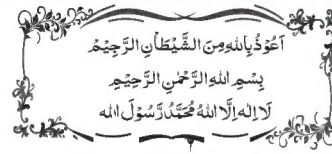 اَعُوْذُ بِاللهِ مِنَ الشَّيْطٰنِ الرَّجِيْمِ
بِسْمِ اللهِ الرَّحْمٰنِ الرَّحِيْمِ
لَا اِلٰهَ اِلَّا اللهُ مُحَمَّدُ رَّسُوْلَ الله